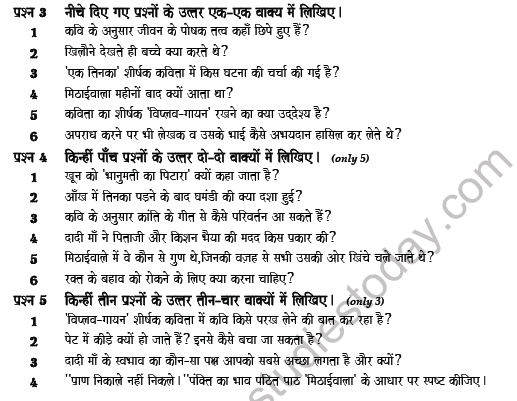 प्रश्न 3 नीचे दिए गए प्रश्नों के उत्तर एक-एक वाक्य में लिखिए।
1 कवि के अनुसार जीवन के पोषक तत्व कहाँ छिपे हुए हैं?
2 खिलौने देखते ही बच्चे क्या करते थे?
3 'एक तिनका' शीर्षक कविता में किस घटना की चर्चा की गई है?
4 मिठाईवाला महीनों बाद क्यों आता था?
5 कविता का शीर्षक 'विप्लव-गायन' रखने का क्या उद्देश्य है?
6 अपराध करने पर भी लेखक व उसके भाई कैसे अभयदान हासिल कर लेते थे?
प्रश्न 4 किन्हीं पाँच प्रश्नों के उत्तर दो-दो वाक्यों में लिखिए। (only 5)
1 खून को 'भानुमती का पिटारा' क्यों कहा जाता है?
2 आँख में तिनका पड़ने के बाद घमंडी की क्या दशा हुई?
3 कवि के अनुसार क्रांति के गीत से कैसे परिवर्तन आ सकते हैं?
4 दादी माँ ने पिताजी और किशन भैया की मदद किस प्रकार की?
5 मिठाईवाले में वे कौन से गुण थे,जिनकी वज़ह से सभी उसकी ओर खिंचे चले जाते थे?
6 रक्त के बहाव को रोकने के लिए क्या करना चाहिए?
प्रश्न 5 किन्हीं तीन प्रश्नों के उत्तर तीन-चार वाक्यों में लिखिए। (only 3)
1 'विप्लव-गायन' शीर्षक कविता में कवि किसे परख लेने की बात कर रहा है?
2 पेट में कीड़े क्यों हो जाते हैं? इनसे कैसे बचा जा सकता है?
3 दादी माँ के स्वभाव का कौन-सा पक्ष आपको सबसे अच्छा लगता है और क्यों?
4 "प्राण निकाले नहीं निकले।"पंक्ति का भाव पठित पाठ 'मिठाईवाला' के आधार पर स्पष्ट कीजिए।
studiestoday.com